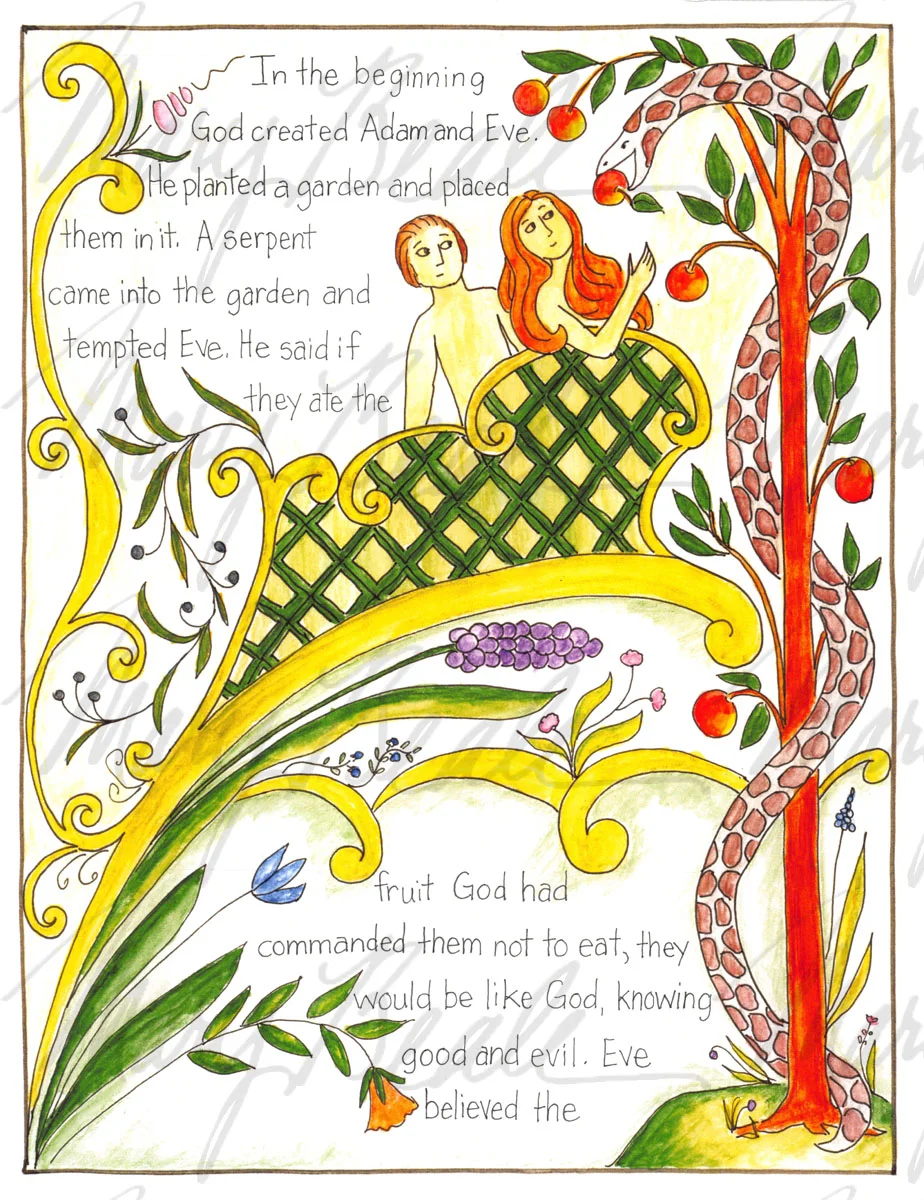 In the beginning
God created Adam and Eve.
He planted a garden and placed
them in it. A serpent
came into the garden and
tempted Eve. He said if
they ate the
fruit God had
commanded them not to eat, they
would be like God, knowing
good and evil. Eve
believed the